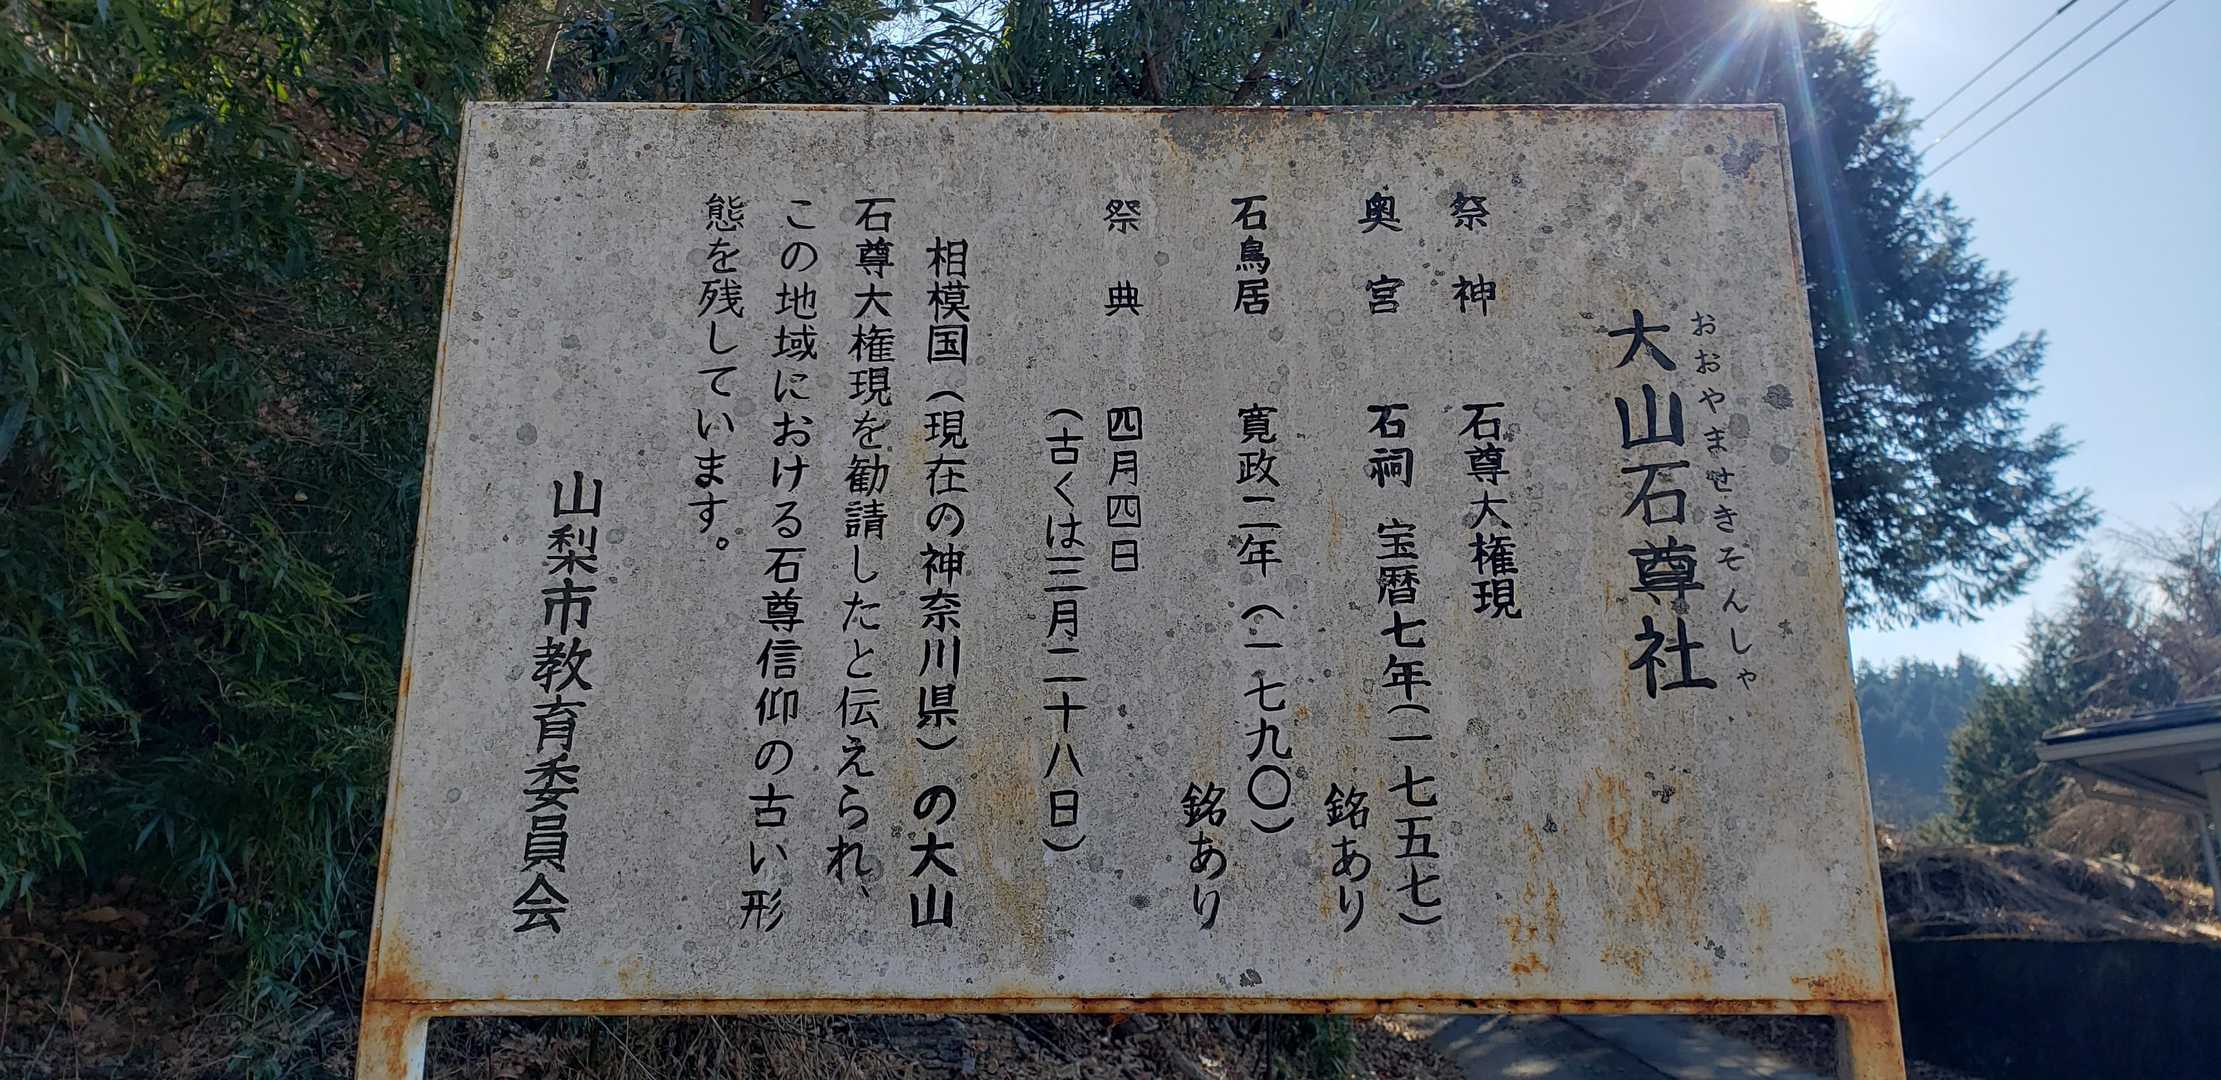 おおやませきそんしゃ
大山石尊社
祭神 石尊大権現
奥宮 石祠 宝暦七年(一七五七)
銘あり
石鳥居 寛政二年(一七九〇)
銘あり
祭典 四月四日
(古くは三月二十八日)
相模国(現在の神奈川県)の大山
石尊大権現を勧請したと伝えられ、
この地域における石尊信仰の古い形
態を残しています。
山梨市教育委員会